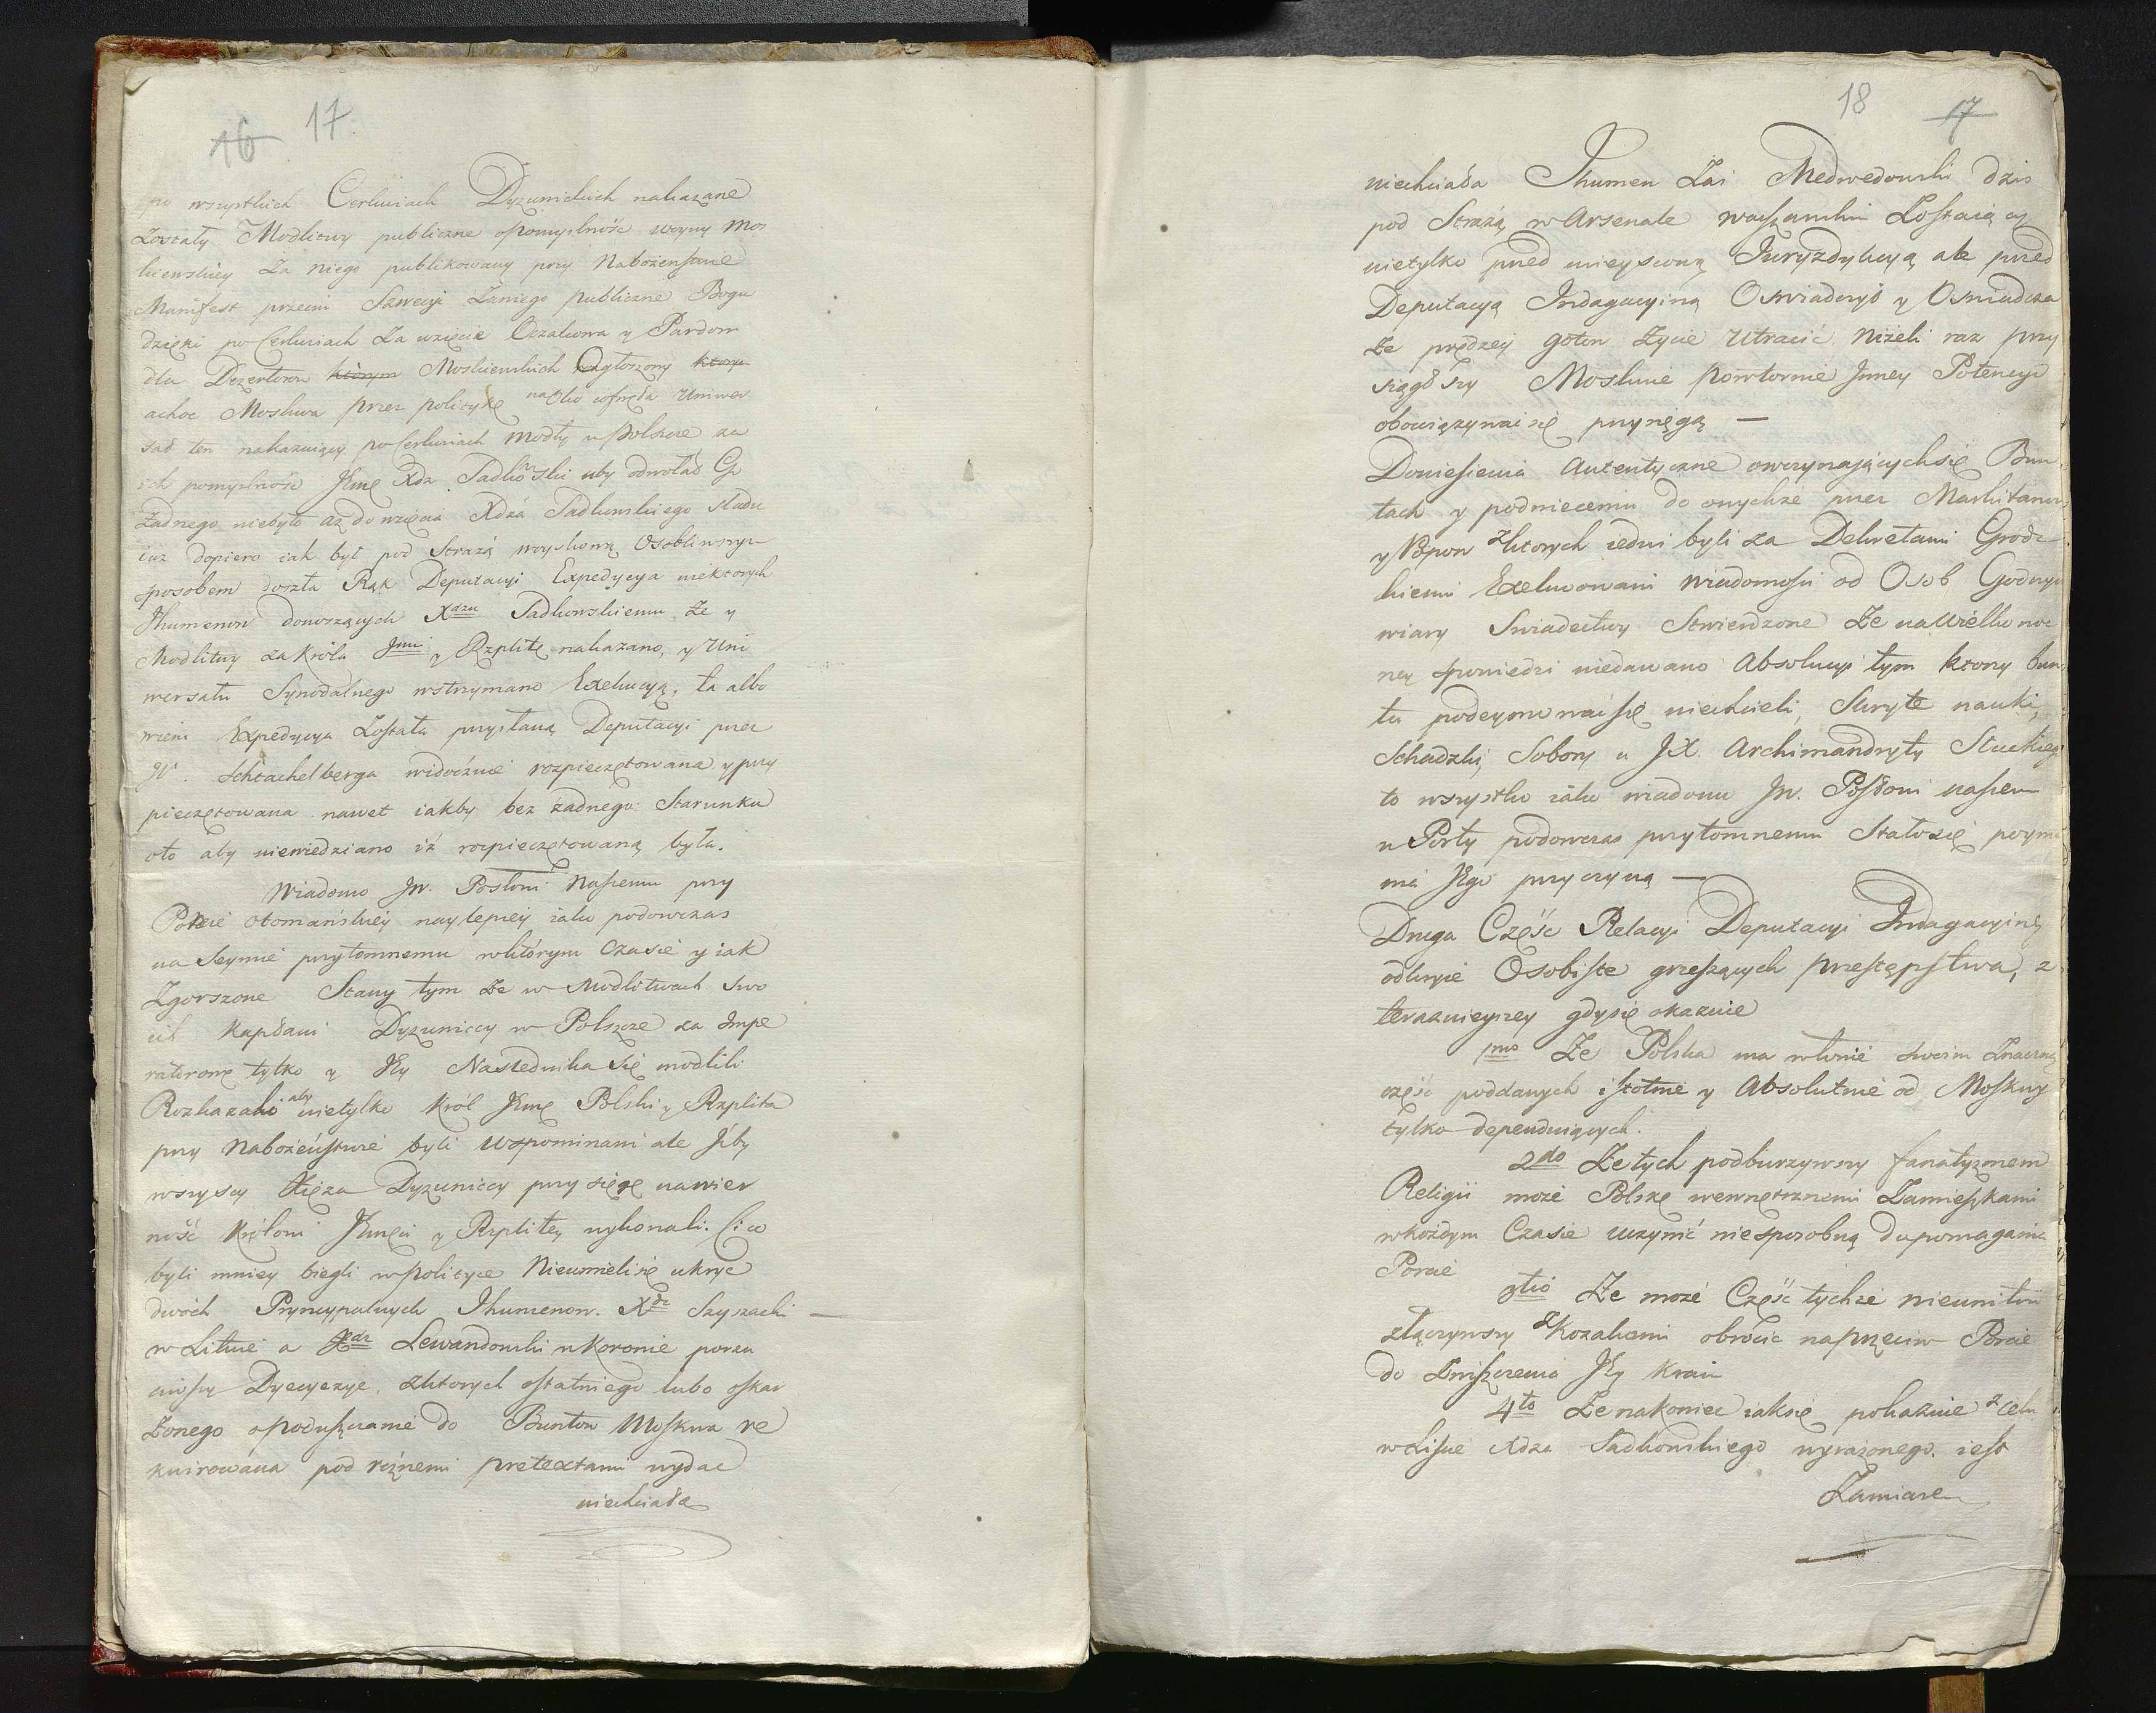 16 17
po wszystkich Cerkwiach Dyzunickich nakazane
Zostały Modlitwy publiczne o pomyślność woyny Mos
kiewskiey Za niego publikowany przy Nabożenstwie
Manifest przeciw Szwecyi Zaniego publiczne Bogu
dzięki po Cerkwiach Za wzięcie Oczakowa y Pardon
dla Dezerterow którym Moskiewskich Ogłoszony który
a choc Moskwa przez politykę cofnęła Uniwer
sał ten nakazuiący po Cerkwiach modły w Polszcze za
ich pomyslność Jmc Xdz Sadkowski aby odwołał Go
Żadnego niebyło aż do wzięcia Xdza Sadkowskiego sladu
iuż dopiero iak był pod Strażą woyskową Osobliwszym
sposobem doszła Rąk Deputacyi Expedycya niektorych
Ihumenow donoszących Xdzu Sadkowskiemu Że y
Modlitwy za Króla Jmci y Rzplitę nakazano, y Uni
wersału Synodalnego wstrzymano Exekucyą, ta albo
wiem Expedycya Zostala przysłaną Deputacyi przez
JW. Schtachelberga widocznie rozpieczętowana y przy
pieczętowana nawet iakby bez żadnego Starunku
oto aby niewiedziano iż rozpieczętowaną była.
Wiadomo Jw. Posłowi Naszemu przy
Porcie otomańskiey naylepiey iako podowczas
na Seymie przytomnemu wktórym Czasie y iak
Zgorszone Stany tym Ze w Modlitwach Swo
ich Kapłani Dyzuniccy w Polszcze za Impe
ratorowę tylko y Jey Nastednika się modlili
Rozkazali aby nietylko Król Jmc Polski y Rzplita
przy Nabożeństwie byli wspominani ale Iżby
wszyscy Xięża Dyzuniccy przysięgę na wier
ność Królowi Jmci y Rzplitey wykonali. Ci co
byli mniey biegli w polityce Nieumieli się ukryc
dwóch Pryncypalnych Ihumenow. Xdz Szyszacki
w Litwie a Xdz Lewandowski w Koronie porzu
ciwszy Dyecyzye, zktorych ostatniego lubo oskar
żonego o poduszczanie do Buntow Moskwa re
kwirowana pod różnemi pretextami wydac
niechciała
18 17
niechciała Ihumen Zaś Medwedowski dziś
pod Strażą w Arsenale warszawskim Zostaiący
nietylko przed mieyscową Juryzdykcyą ale przed
Deputacyą Indagacyiną Oswiadczył y Oswiadcza
że prędzey gotow Zycie Utracić niżeli raz przy
siągłszy Moskwie powtornie Inney Potencyi
obowiązywać się przysięgą —
Doniesienia Autentyczne o wczynających się Bun
tach y podnieceniu do onychże przez Markitanow
y Popow zktorych iedni byli za Dekretami Grodz
kiemi Exekwowani wiadomości od Osob Godnych
wiary Swiadectwy Stwierdzone Ze na wielkonoc
ney spowiedzi niedawano Absolucyi tym ktorzy bun
tu podeymować się niechcieli, Skryte nauki,
Schadzki, Sobory u JX. Archimandryty Sluckiego
to wszystko iako wiadomu Jw. Posłowi naszemu
u Porty podowczas przytomnemu Stało się poyma
nia Jego przyczyną —
Druga Część Relacyi Deputacyi Indagacyiney
odkryie Osobiste grzeszących przestępstwa, z
teraznieyszey gdy się okazuie
1mo Ze Polska ma włonie swoim Znaczną
część poddanych istotnie y Absolutnie od Moskwy
tylko dependuiących.
2do Ze tych podburzywszy fanatyzmem
Religii może Polskę wewnętrznemi Zamieszkami
wkożdym Czasie uczynić niesposobną dopomagania
Porcie
3tio Ze może Część tychże nieunitow
złączywszy zKozakami obrócic naprzeciw Porcie
do Zniszczenia Jey Kraiu
4to Ze nakoniec iak się pokazuie z Celu
wLiscie Xdza Sadkowskiego wyrażonego. iest
Zamiarem